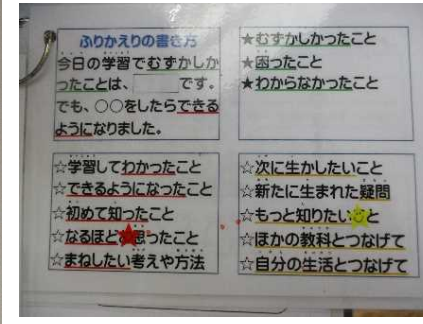 ふりかえりの書き方
今日の学習でむずかしか
ったことは、 です。
でも、○○をしたらできる
ようになりました。
★むずかしかったこと
★困ったこと
★わからなかったこと
☆学習してわかったこと
☆できるようになったこと
☆初めて知ったこと
☆なるほどと思ったこと
☆まねしたい考えや方法
☆次に生かしたいこと
☆新たに生まれた疑問
☆もっと知りたいこと
☆ほかの教科とつなげて
☆自分の生活とつなげて